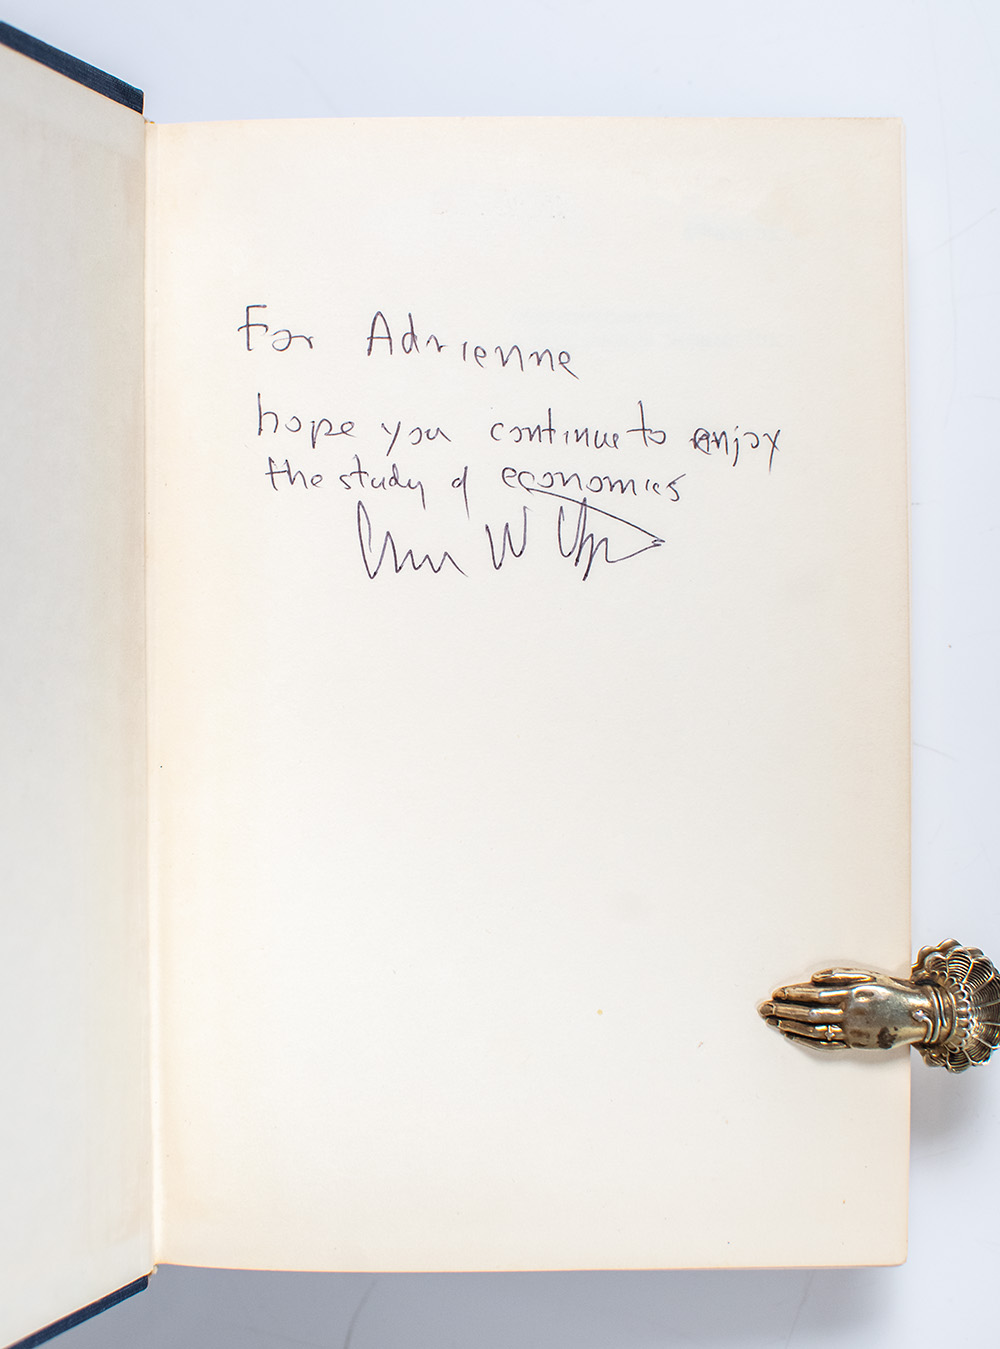 For Adrienne
hope you continue to enjoy
the study of economics
W